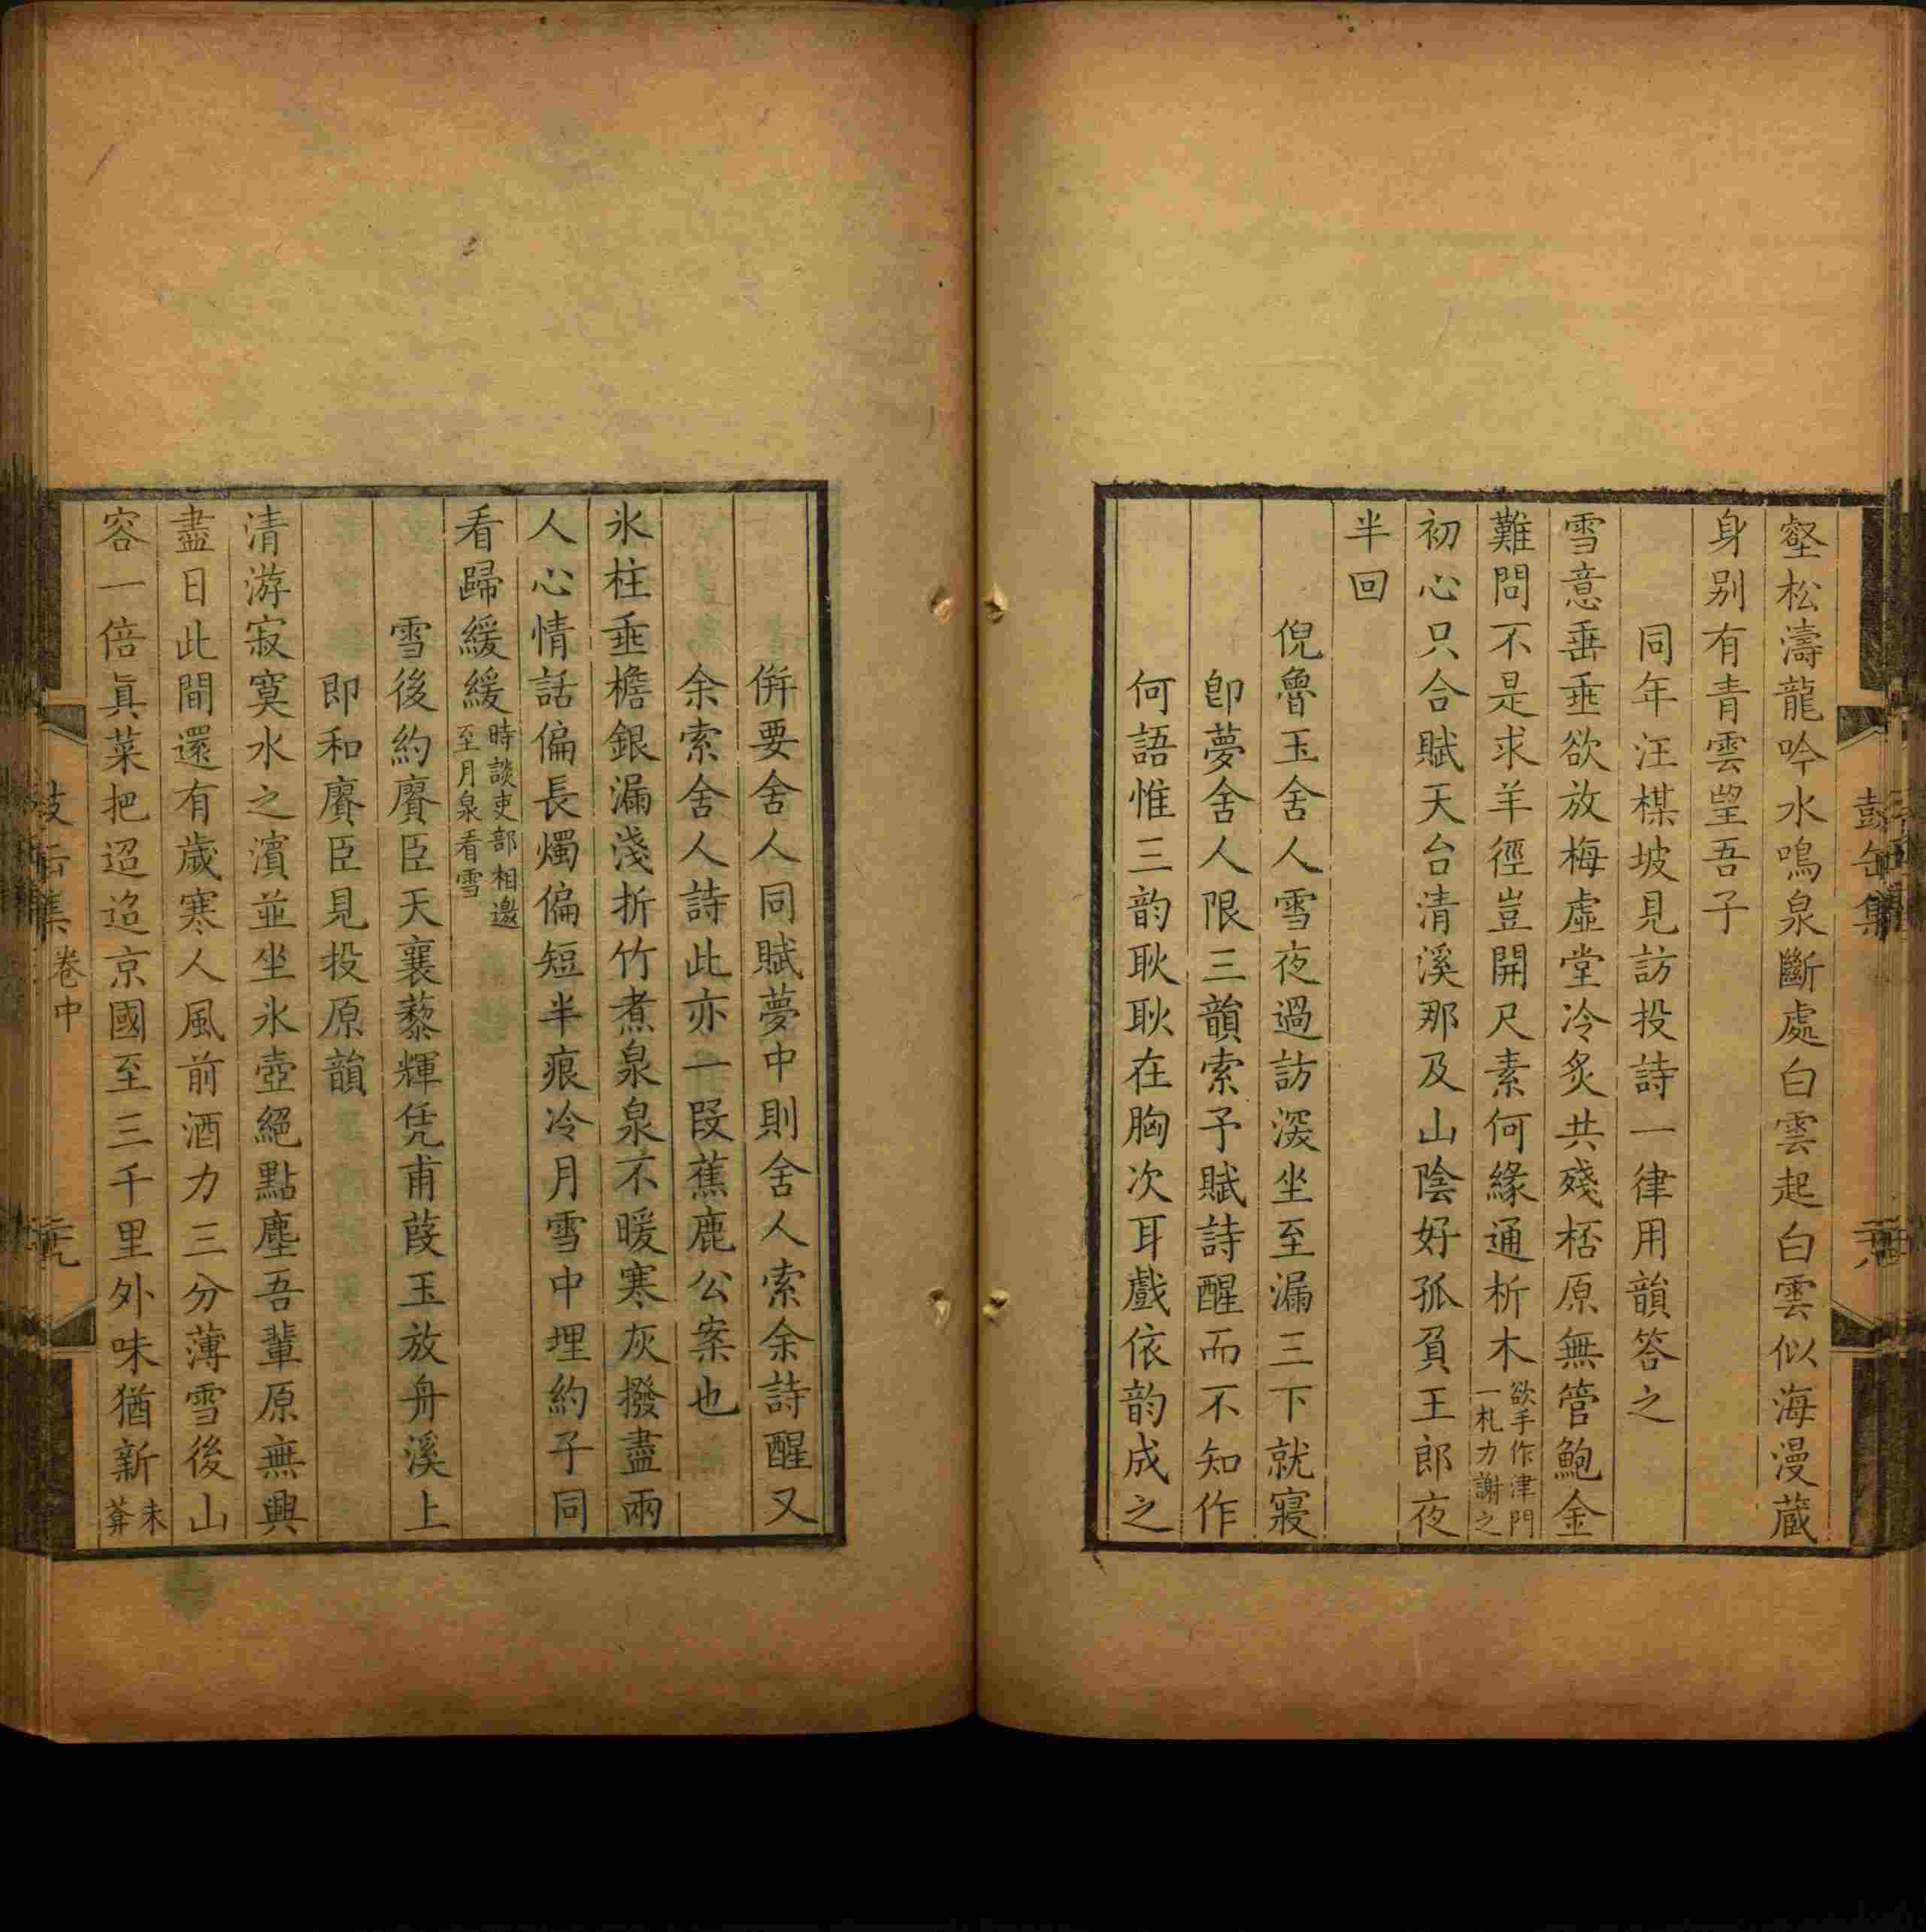 壑松濤龍吟水鳴泉斷處白雲起白雲似海漫藏
身别有青雲望吾子
同年汪楳坡見訪投詩一律用韻答之
雪意垂垂欲放梅虛堂冷炙共殘桮原無管鮑金
難問不是求羊徑豈開尺素何緣通析木欲手作津門
一札力謝之
初心只合賦天台清溪那及山陰好孤負王郎夜
半回
倪魯玉舍人雪夜過訪深坐至漏三下就寢
卽夢舍人限三韻索予賦詩醒而不知作
何語惟三韵耿耿在胸次耳戲依韵成之
倂要舍人同賦夢中則舍人索余詩醒又
余索舍人詩此亦一段蕉鹿公案也
氷柱垂檐銀漏淺折竹煮泉泉不暖寒灰撥盡兩
人心情話偏長燭偏短半痕冷月雪中埋約子同
看歸緩緩時談吏部相邀
至月泉看雪
雪後約賡臣天襄藜輝凭甫葭玉放舟溪上
即和賡臣見投原韻
清游寂寞水之濱並坐氷壺絕點塵吾輩原無興
盡日此間還有歲寒人風前酒力三分薄雪後山
容一倍眞菜把迢迢京國至三千里外味猶新未
卷中